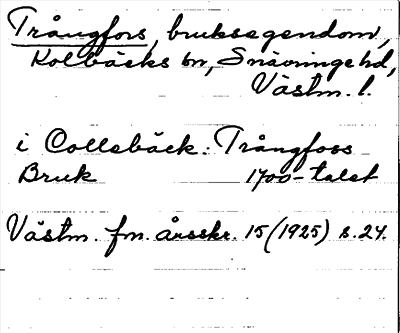 Trångfors, bruksegendom,
Kolbäcks sn, Snävringe hd,
Västm. l.
i Collebäck: Trångfoss
Bruk 1700-talet
Västm. fm. årsskr. 15 (1925) s. 24.